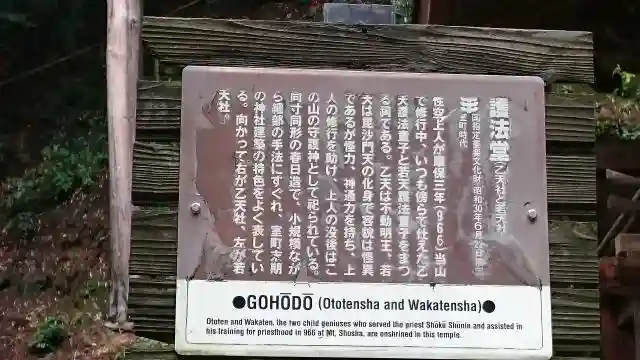 護法堂(乙天社と若天社)
国指定重要文化財(昭和30年6月22日)
室町時代
性空上人が康保三年(966)当山
で修行中、いつも傍らで仕えた乙
天護法童子と若天護法童子をまつ
る祠である。乙天は不動明王、若
天は毘沙門天の化身で容貌は怪異
であるが怪力、神通力を持ち、上
人の修行を助け、上人の没後はこ
の山の守護神として祀られている。
同寸同形の春日造で、小規模なが
ら細部の手法にすぐれ、室町末期
の神社建築の特色をよく表してい
る。向かって右が乙天社、左が若
天社。
●GOHŌDŌ (Ototensha and Wakatensha)●
Ototen and Wakaten, the two child geniuses who served the priest Shōkū Shōnin and assisted in
his training for priesthood in 966 at Mt. Shosha, are enshrined in this temple.